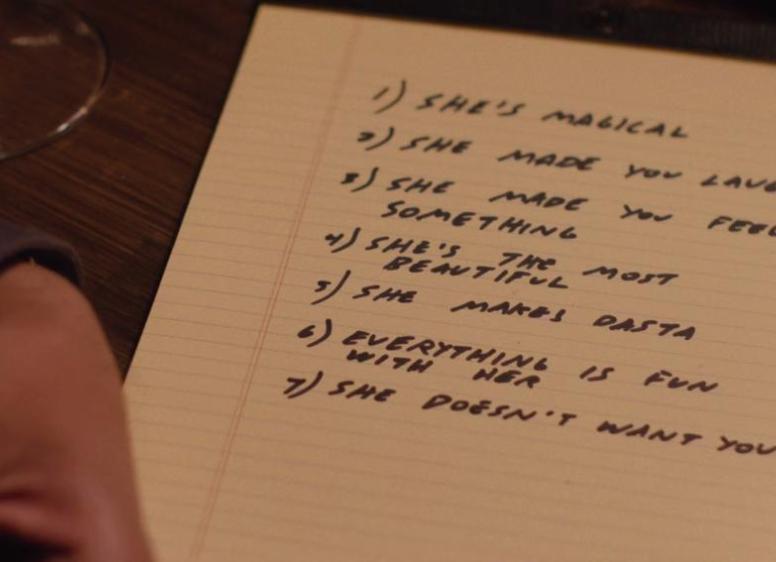 1) SHE'S MAGICAL
2) SHE MADE YOU LAUG
3) SHE MADE YOU FEEL
SOMETHING
4) SHE'S THE MOST
BEAUTIFUL
5) SHE MAKES PASTA
6) EVERYTHING IS FUN
WITH HER
7) SHE DOESN'T WANT YOU